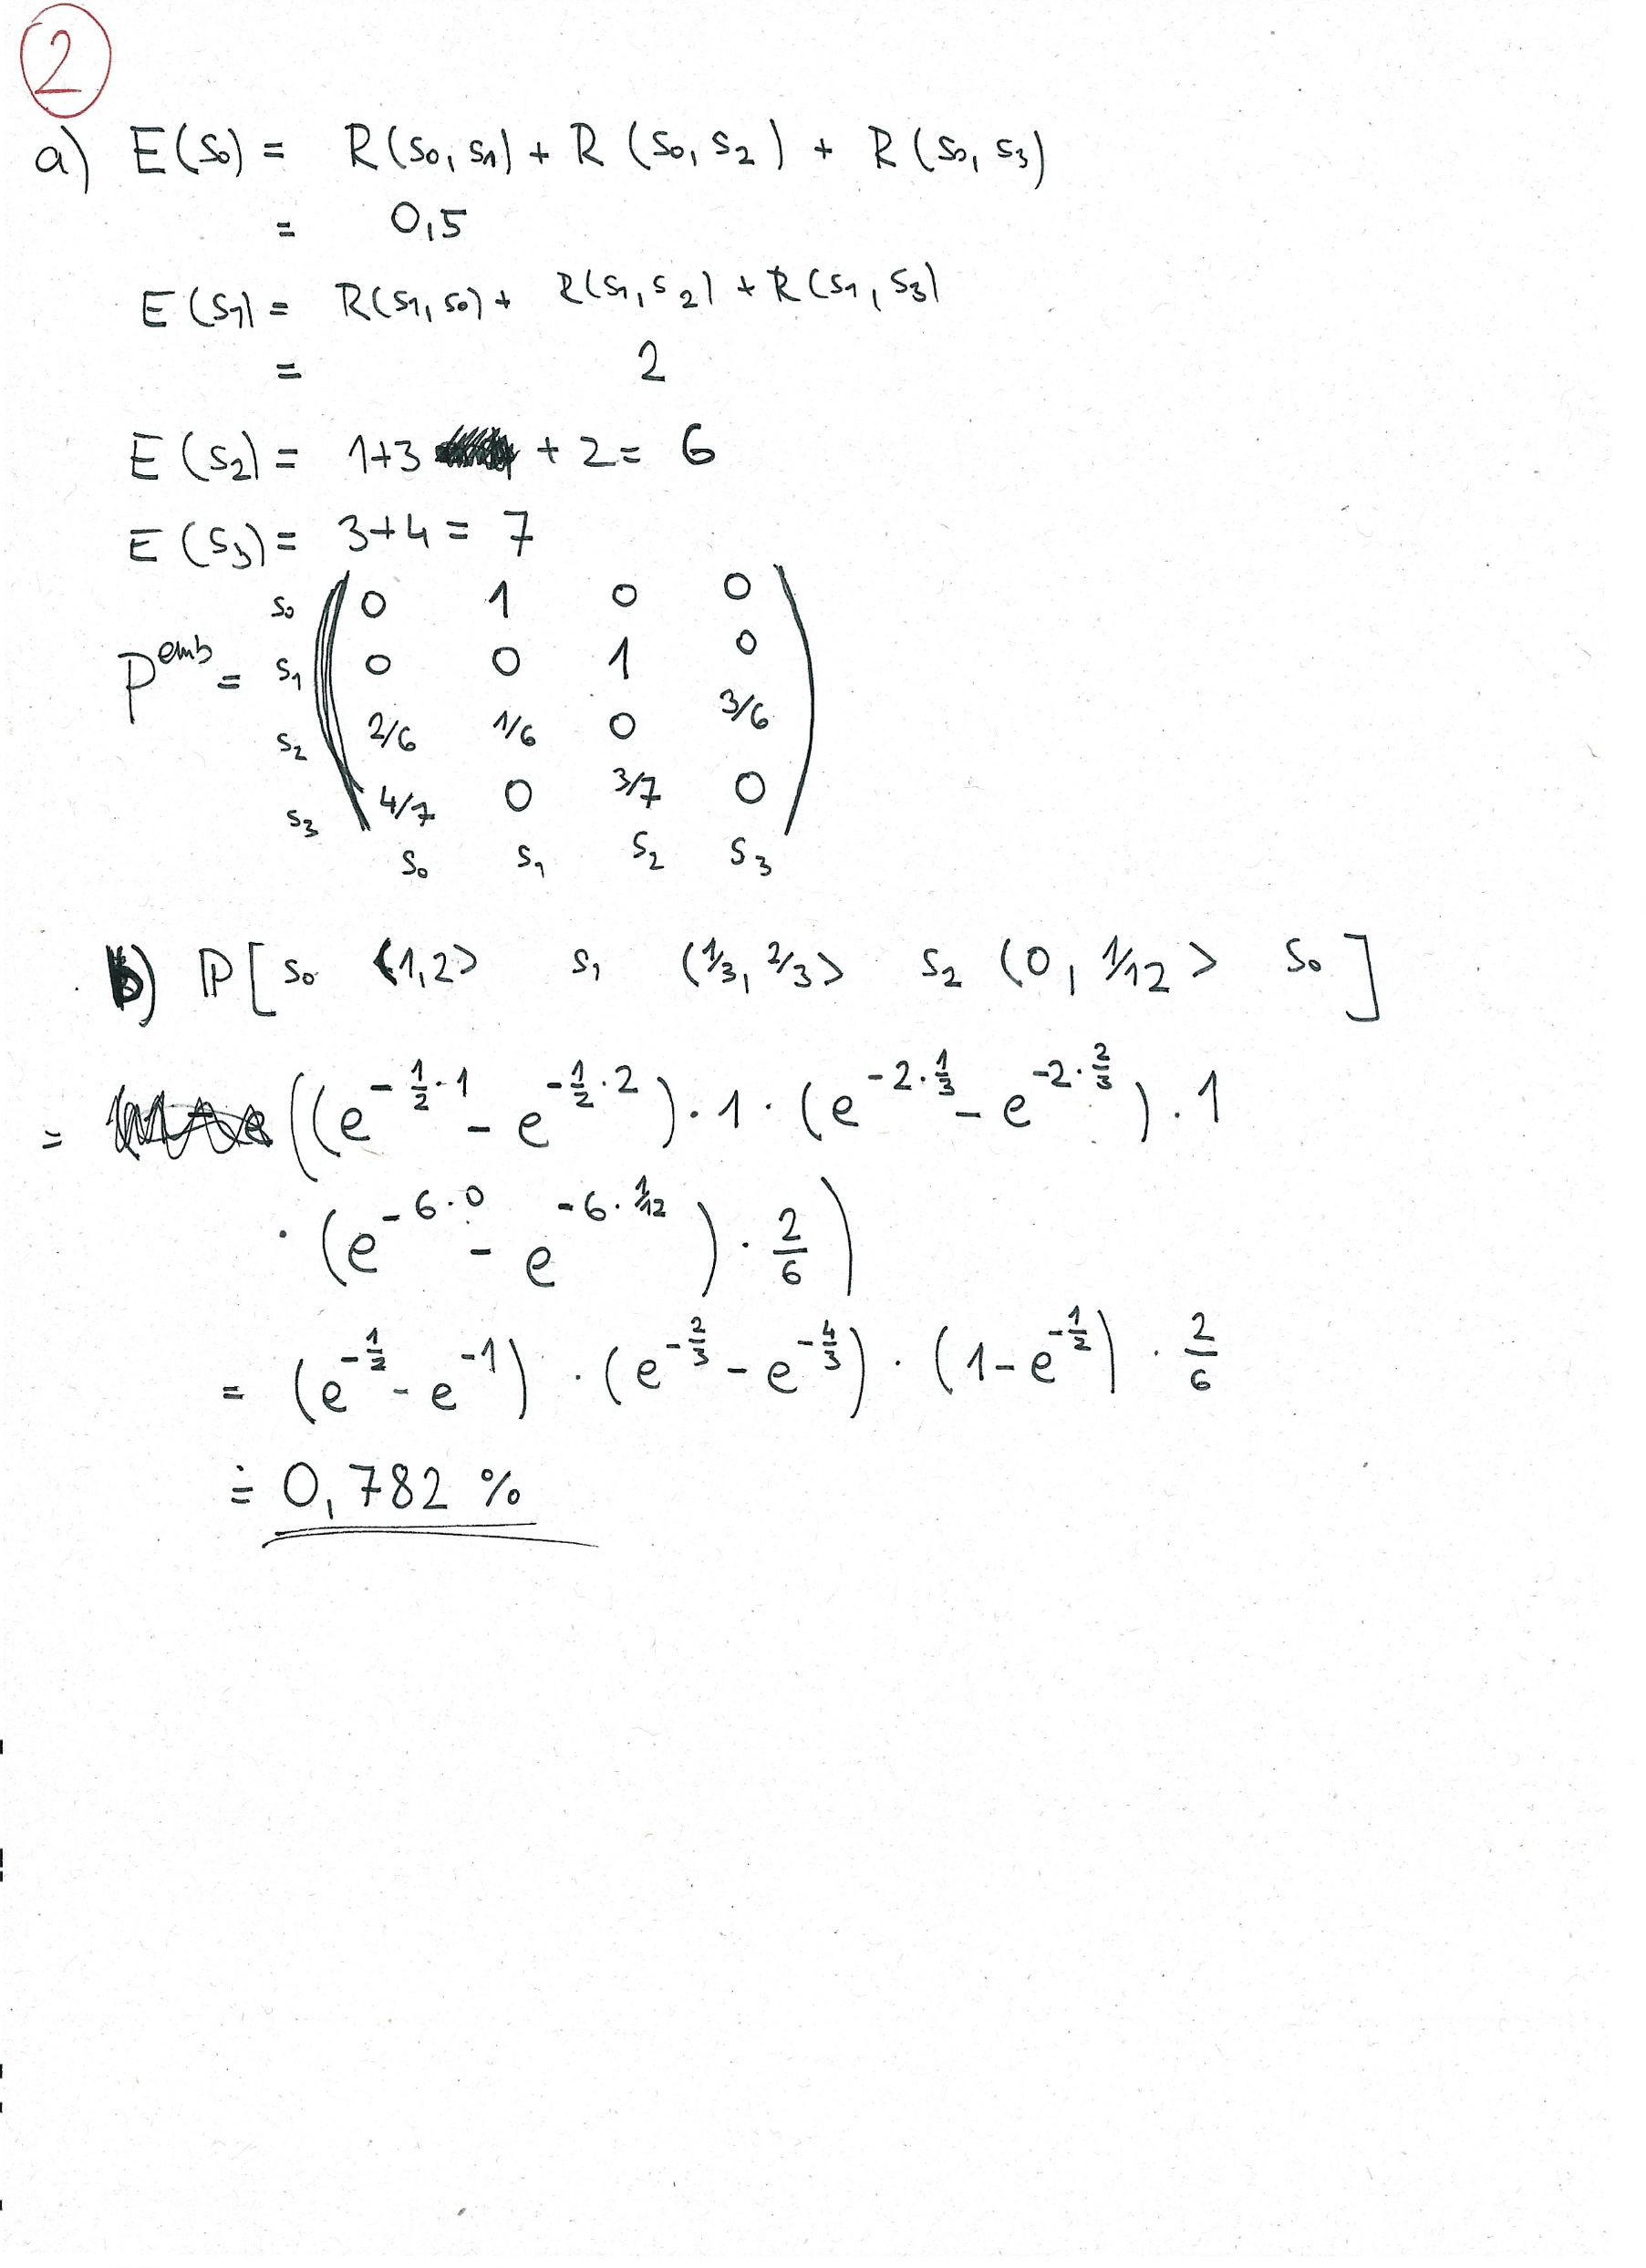 2
a) E(s₀) = R(s₀, s₁) + R(s₀, s₂) + R(s₀, s₃)
= 0,5
E(s₁) = R(s₁, s₀) + R(s₁, s₂) + R(s₁, s₃)
= 2
E(s₂) = 1+3 + 2 = 6
E(s₃) = 3+4 = 7
s₀ 0 1 0 0
P^emb = s₁ 0 0 1 0
s₂ 2/6 1/6 0 3/6
s₃ 4/7 0 3/7 0
s₀ s₁ s₂ s₃
b) ℙ[ s₀ <1,2> s₁ (1/3, 2/3> s₂ (0, 1/12> s₀ ]
= ((e^{-1/2·1} - e^{-1/2·2}) · 1 · (e^{-2·1/3} - e^{-2·2/3}) · 1
· (e^{-6·0} - e^{-6·1/12}) · 2/6)
= (e^{-1/2} - e^{-1}) · (e^{-2/3} - e^{-4/3}) · (1 - e^{-1/2}) · 2/6
≐ 0,782 %